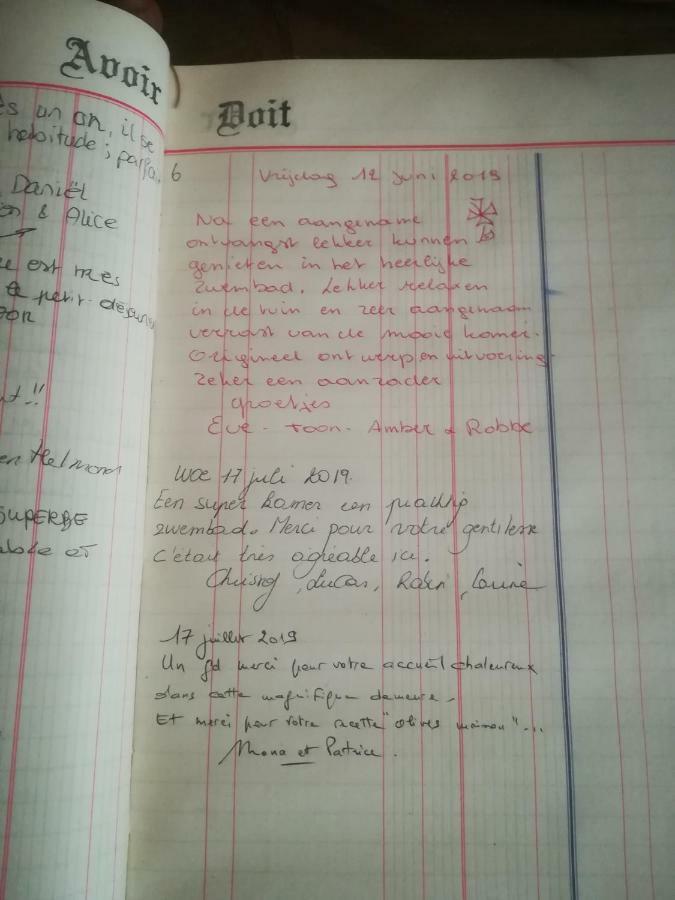 Avoir
un an, il se
habitude; parfa.
Daniël
& Alice
est très
petit-déjeuner
!!
en Helmond
SUPERBE
Doit
6
Vrijdag 12 juni 2019
Na een aangename
ontvangst lekker kunnen
genieten in het heerlijke
zwembad. Lekker relaxen
in de tuin en zeer aangenaam
verrast van de mooie kamer.
Origineel ontwerp en uitvoering
Zeker een aanrader
groetjes
Eve - Toon - Amber & Robbe
Woe 17 juli 2019.
Een super kamer een prachtig
zwembad. Merci pour votre gentilesse
c'était très agréable ici.
Lucas, Robin,
17 juillet 2019
Un gd merci pour votre accueil chaleureux
dans cette magnifique demeure.
Et merci pour votre recette "olives maison"...
Mona et Patrice.